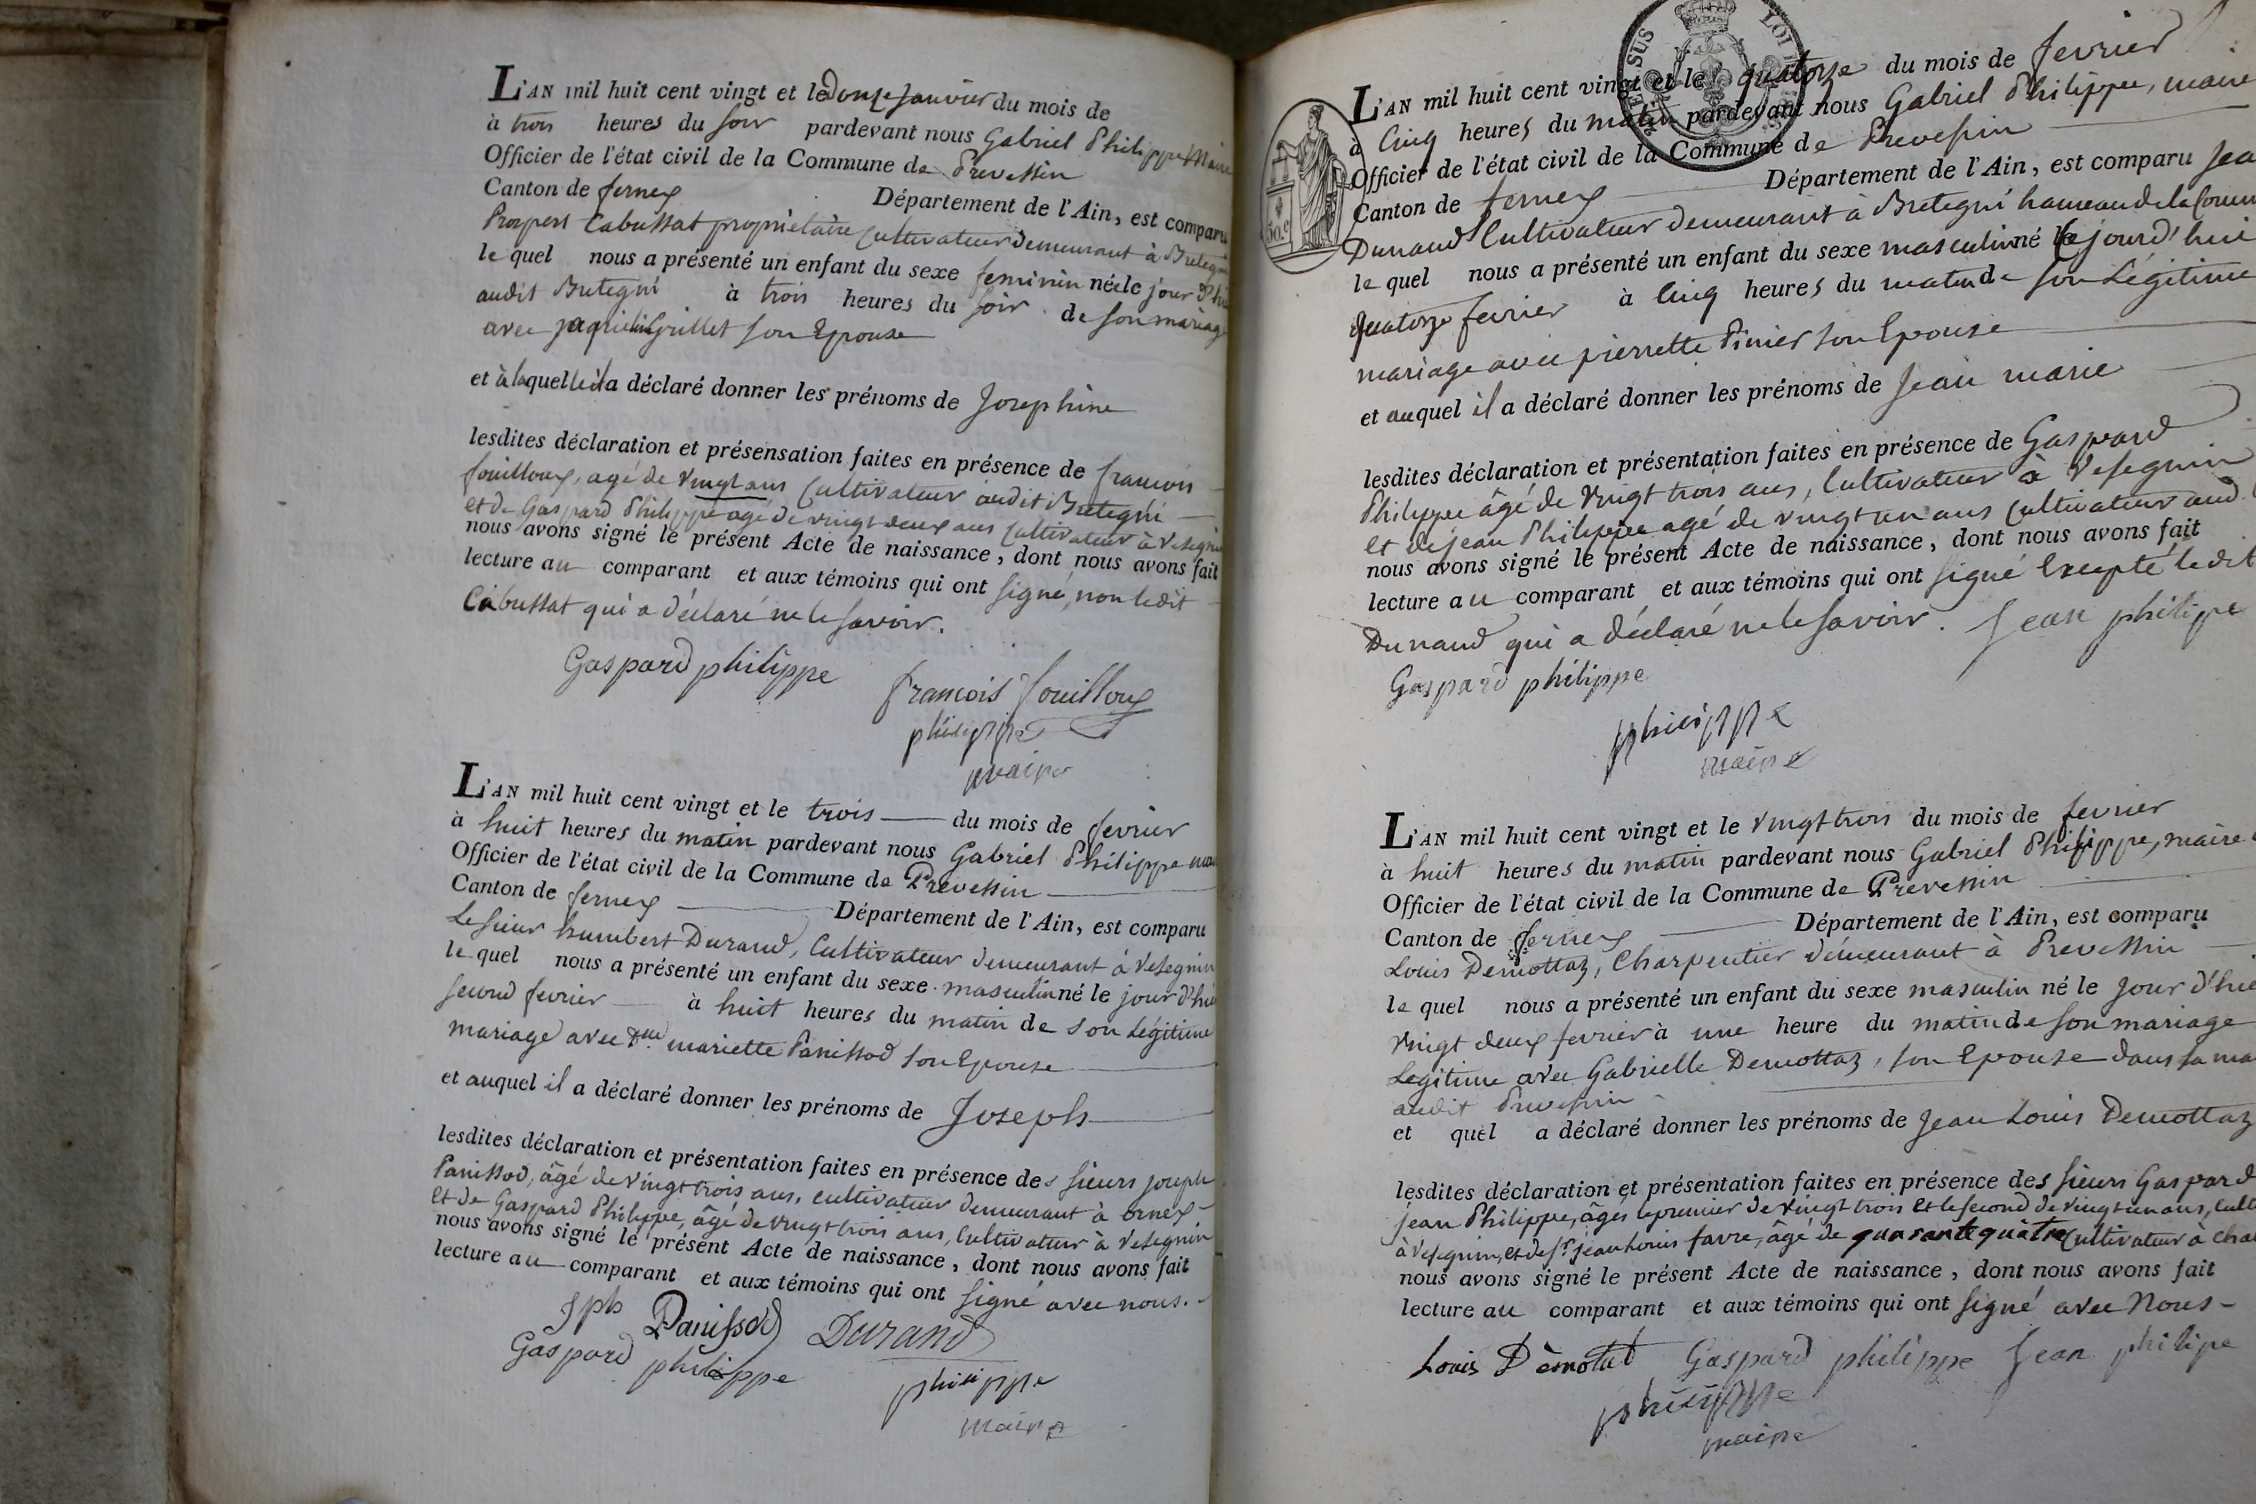 L'AN mil huit cent vingt et le douze janvier du mois de
à trois heures du soir pardevant nous Gabriel Philippe Maire
Officier de l'état civil de la Commune de Prevessin
Canton de ferney Département de l'Ain, est comparu
Prospert Cabussat propriétaire Cultivateur demeurant à Bretegni
le quel nous a présenté un enfant du sexe feminin née le jour d'hui
audit Bretegni à trois heures du soir de son mariage
avec Grillet son Epouse
et à laquelle il a déclaré donner les prénoms de Josephine
lesdites déclaration et présensation faites en présence de francois
fouilloux, agé de vingt ans Cultivateur audit Bretegni
et de Gaspard Philippe agé de vingt deux ans Cultivateur à Vesegnin
nous avons signé le présent Acte de naissance, dont nous avons fait
lecture au comparant et aux témoins qui ont signé, non ledit
Cabussat qui a déclaré ne le savoir.
Gaspard philippe
francois fouilloux
philippe
maire
L'AN mil huit cent vingt et le trois du mois de fevrier
à huit heures du matin pardevant nous Gabriel Philippe
Officier de l'état civil de la Commune de Prevessin
Canton de ferney Département de l'Ain, est comparu
Le sieur humbert Durand, Cultivateur demeurant à Vesegnin
le quel nous a présenté un enfant du sexe masculin né le jour d'hier
second fevrier à huit heures du matin de son Légitime
mariage avec Dlle mariette Panissod son Epouse
et auquel il a déclaré donner les prénoms de Joseph
lesdites déclaration et présentation faites en présence des sieurs joseph
Panissod, âgé de vingt trois ans, cultivateur demeurant à ornex
et de Gaspard Philippe, âgé de vingt trois ans, Cultivateur à Vesegnin
nous avons signé le présent Acte de naissance, dont nous avons fait
lecture au comparant et aux témoins qui ont signé avec nous.
Jph Panissod Durand
Gaspard philippe
philippe
maire
L'AN mil huit cent vingt et le quatorze du mois de fevrier
à Cinq heures du matin pardevant nous Gabriel Philippe, maire
Officier de l'état civil de la Commune de Prevessin
Canton de ferney Département de l'Ain, est comparu Jea
Dunand Cultivateur demeurant à Bretegni hameau de la Comm
le quel nous a présenté un enfant du sexe masculin né le jourd'hui
quatorze fevrier à Cinq heures du matin de son Légitime
mariage avec pierrette Pinier son Epouse
et auquel il a déclaré donner les prénoms de Jean marie
lesdites déclaration et présentation faites en présence de Gaspard
Philippe âgé de Vingt trois ans, Cultivateur à Vesegnin
et de jean Philippe agé de vingt un ans Cultivateur aud.
nous avons signé le présent Acte de naissance, dont nous avons fait
lecture au comparant et aux témoins qui ont signé Excepté ledit
Dunand qui a déclaré ne le savoir. Jean philippe
Gaspard philippe
philippe
maire
L'AN mil huit cent vingt et le vingt trois du mois de fevrier
à huit heures du matin pardevant nous Gabriel Philippe, maire
Officier de l'état civil de la Commune de Prevessin
Canton de ferney Département de l'Ain, est comparu
Louis Demottaz, Charpentier démeurant à Prevessin
le quel nous a présenté un enfant du sexe masculin né le jour d'hie
vingt deux fevrier à une heure du matin de son mariage
Légitime avec Gabrielle Demottaz, son Epouse dans sa ma
audit Prevessin
et quel a déclaré donner les prénoms de Jean Louis Demottaz
lesdites déclaration et présentation faites en présence des sieurs Gaspard
jean Philippe, âgés le premier de vingt trois et le second de vingt un ans, Cult
à Vesegnin, et de sr. jean Louis favre, âgé de quarante quatre Cultivateur à Cha
nous avons signé le présent Acte de naissance, dont nous avons fait
lecture au comparant et aux témoins qui ont signé avec Nous
Louis Dèmotat Gaspard philippe Jean philipe
philippe
maire